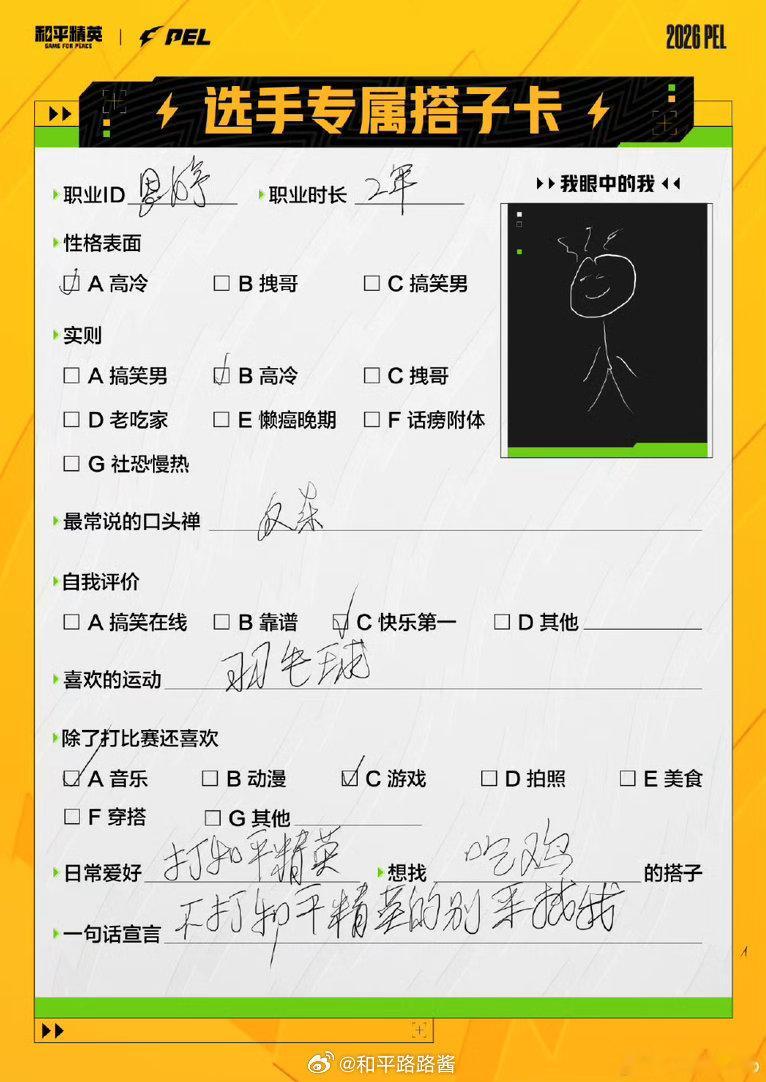 和平精英 GAME FOR PEACE | PEL 2026 PEL
选手专属搭子卡
职业ID 恩婷 职业时长 2年
我眼中的我
性格表面
A 高冷 B 拽哥 C 搞笑男
实则
A 搞笑男 B 高冷 C 拽哥
D 老吃家 E 懒癌晚期 F 话痨附体
G 社恐慢热
最常说的口头禅
自我评价
A 搞笑在线 B 靠谱 C 快乐第一 D 其他
喜欢的运动 羽毛球
除了打比赛还喜欢
A 音乐 B 动漫 C 游戏 D 拍照 E 美食
F 穿搭 G 其他
日常爱好 打和平精英 想找 吃鸡 的搭子
一句话宣言 不打和平精英的别来找我
@和平路路酱